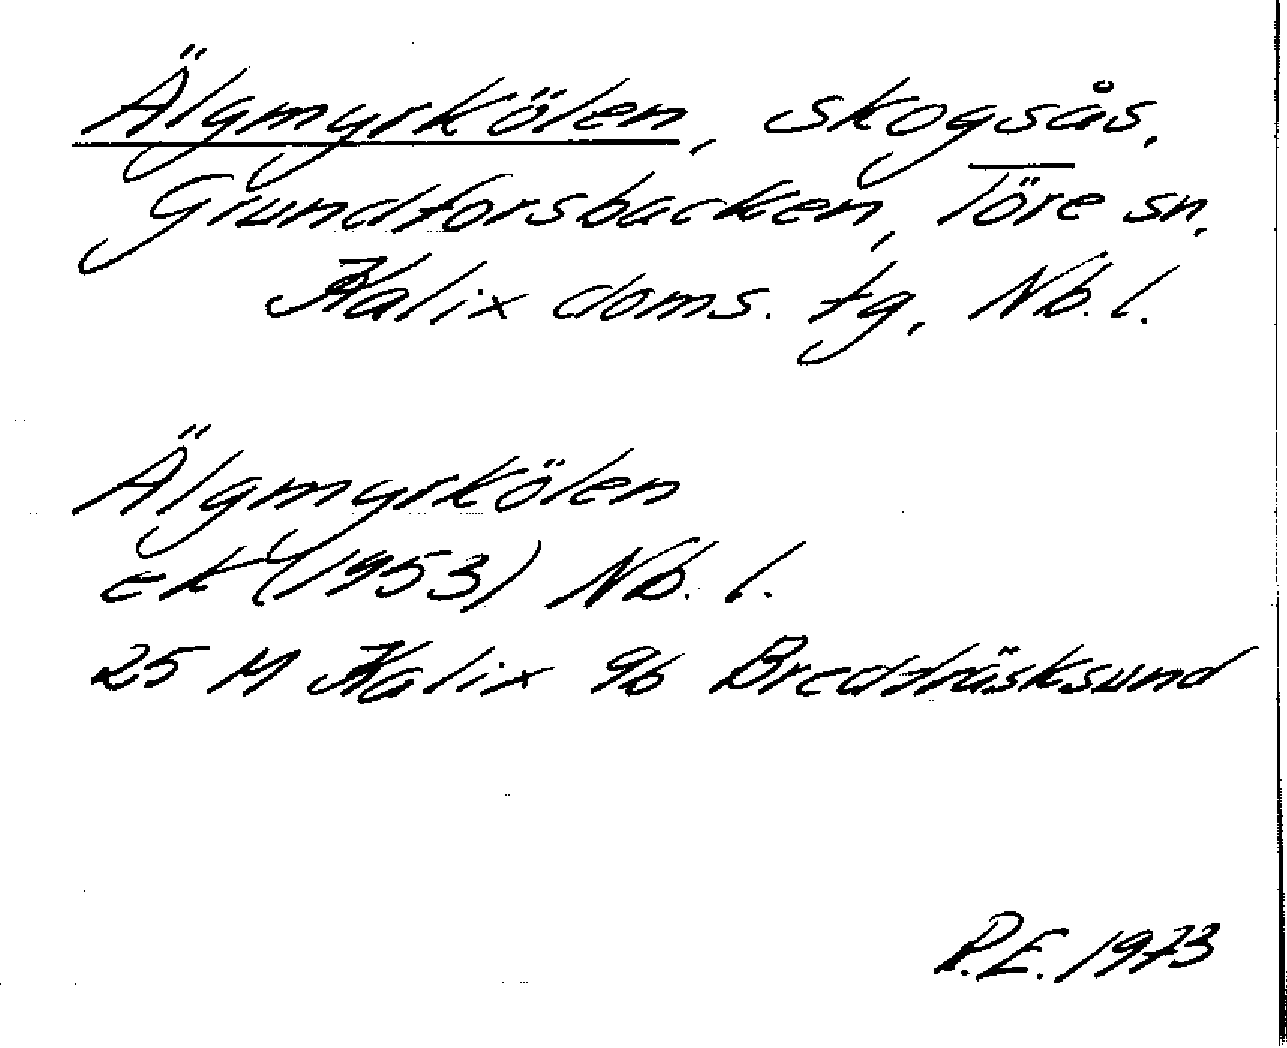 Älgmyrkölen, skogsås,
Grundforsbacken, Töre sn,
Kalix doms. tg, Nb. l.
Älgmyrkölen
ek (1953) Nb. l.
25 M Kalix 9b Bredträsksund
P.E. 1973